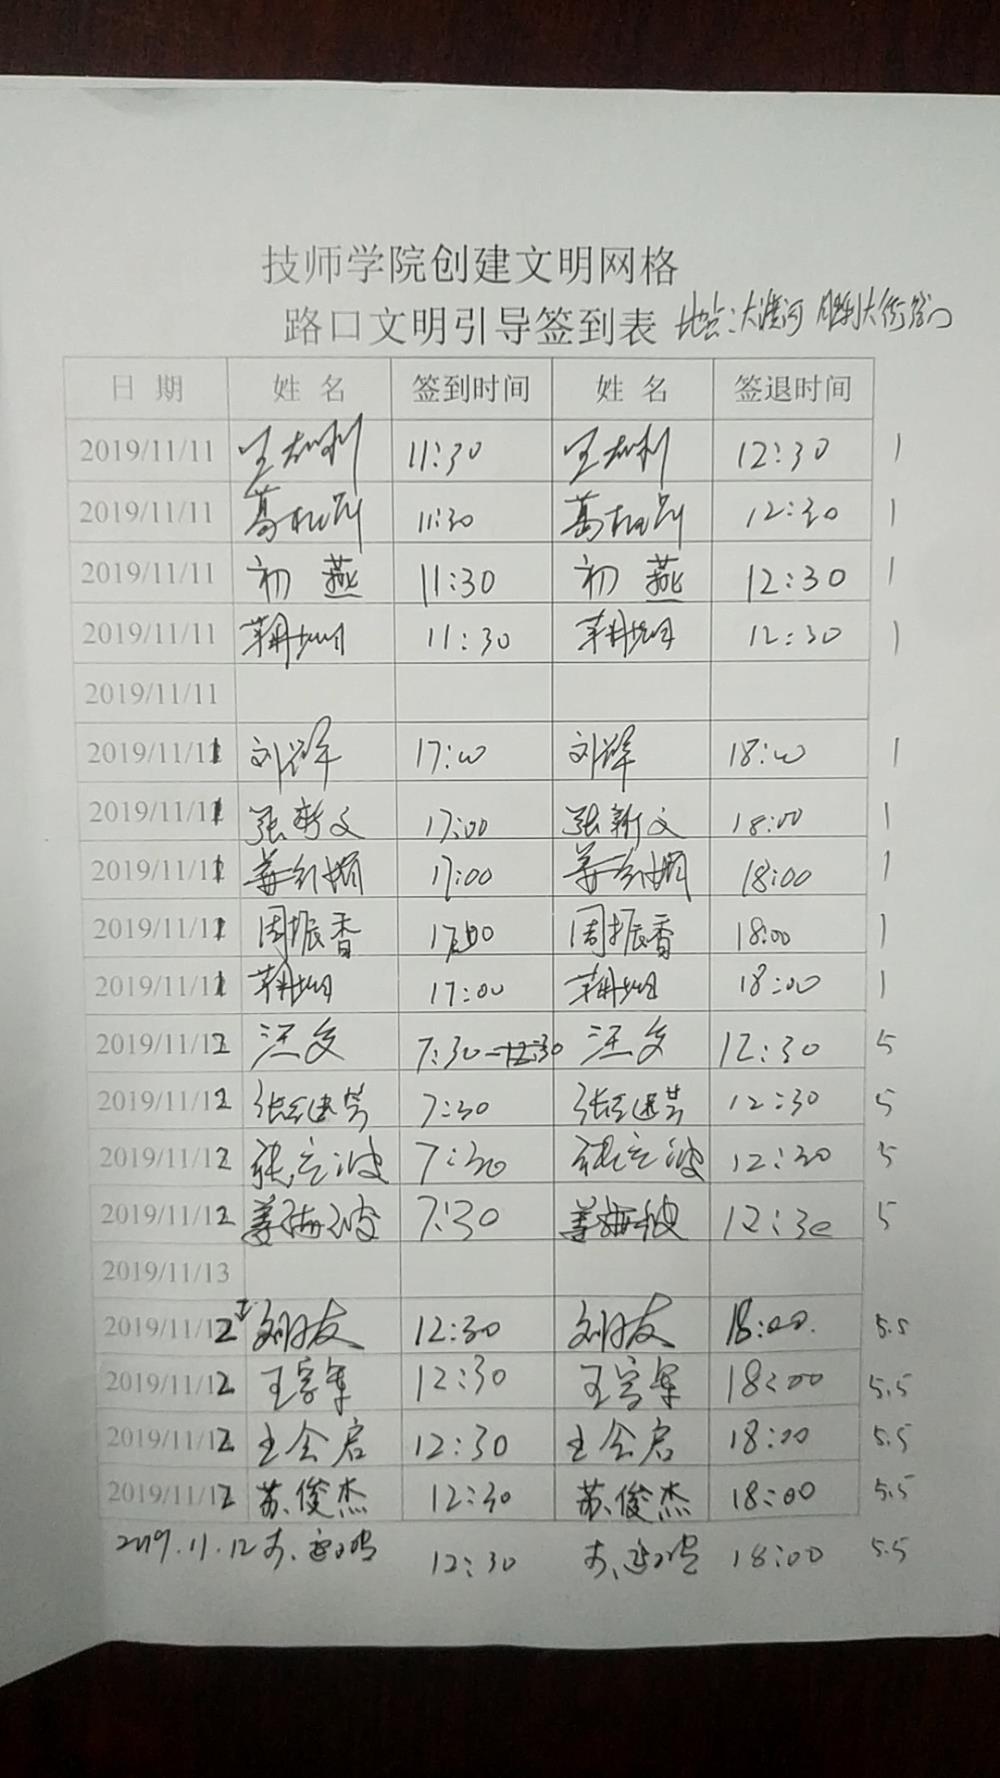 技师学院创建文明网格
路口文明引导签到表 地点:大淮河 胜利大街路口
日期 姓名 签到时间 姓名 签退时间
2019/11/11 11:30 12:30 1
2019/11/11 11:30 12:30 1
2019/11/11 初燕 11:30 初燕 12:30 1
2019/11/11 11:30 12:30 1
2019/11/11
2019/11/11 17:00 18:00 1
2019/11/11 张新文 17:00 张新文 18:00 1
2019/11/11 姜红娟 17:00 姜红娟 18:00 1
2019/11/11 周振香 17:00 周振香 18:00 1
2019/11/11 17:00 18:00 1
2019/11/12 汪文 7:30 汪文 12:30 5
2019/11/12 7:30 12:30 5
2019/11/12 张立波 7:30 张立波 12:30 5
2019/11/12 姜海波 7:30 姜海波 12:30 5
2019/11/13
2019/11/12 12:30 18:00. 5.5
2019/11/12 12:30 18:00 5.5
2019/11/12 王会启 12:30 王会启 18:00 5.5
2019/11/12 苏俊杰 12:30 苏俊杰 18:00 5.5
2019.11.12 12:30 18:00 5.5